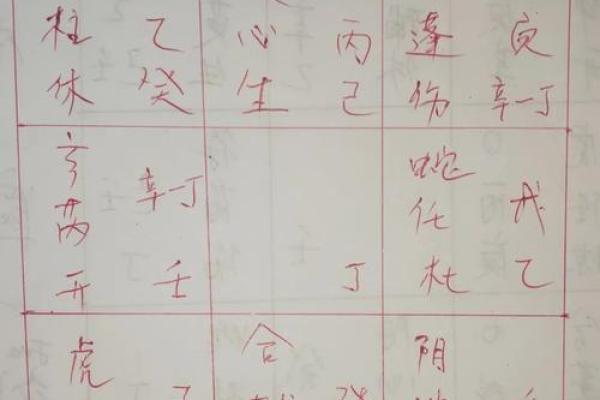 柱 乙 心 丙 蓬
休 癸 生 己 伤 辛一丁
蛇
芮 辛一丁 任 戊
开 壬 丁 杜 乙
虎 合 阴